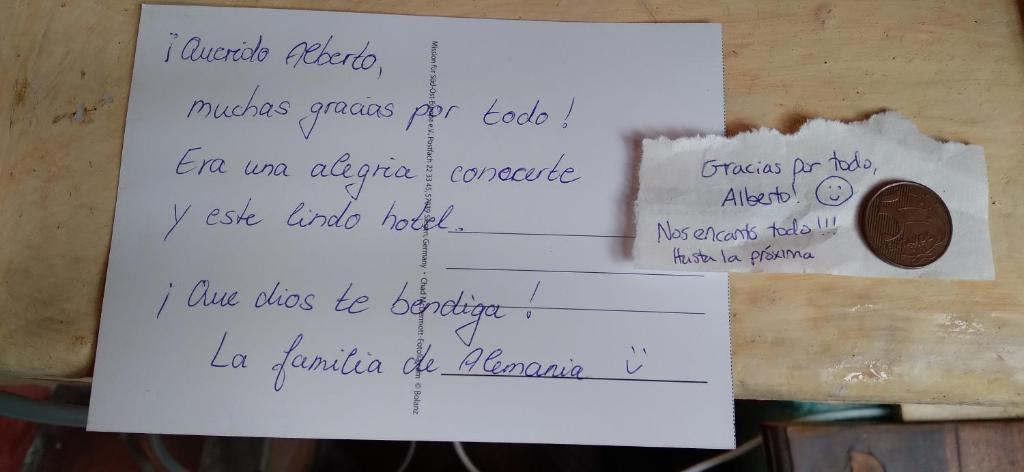 ¡Querido Alberto,
muchas gracias por todo!
Era una alegria conocerte
y este lindo hotel.
¡Que dios te bendiga!
La familia de Alemania
Mission für Süd-Ost-Europa e.V., Postfach 22 33 45, Siegen, Germany • Chad McDermott-Fotolia © Bolanz
Gracias por todo,
Alberto!
Nos encanto todo!!!
Hasta la próxima
5